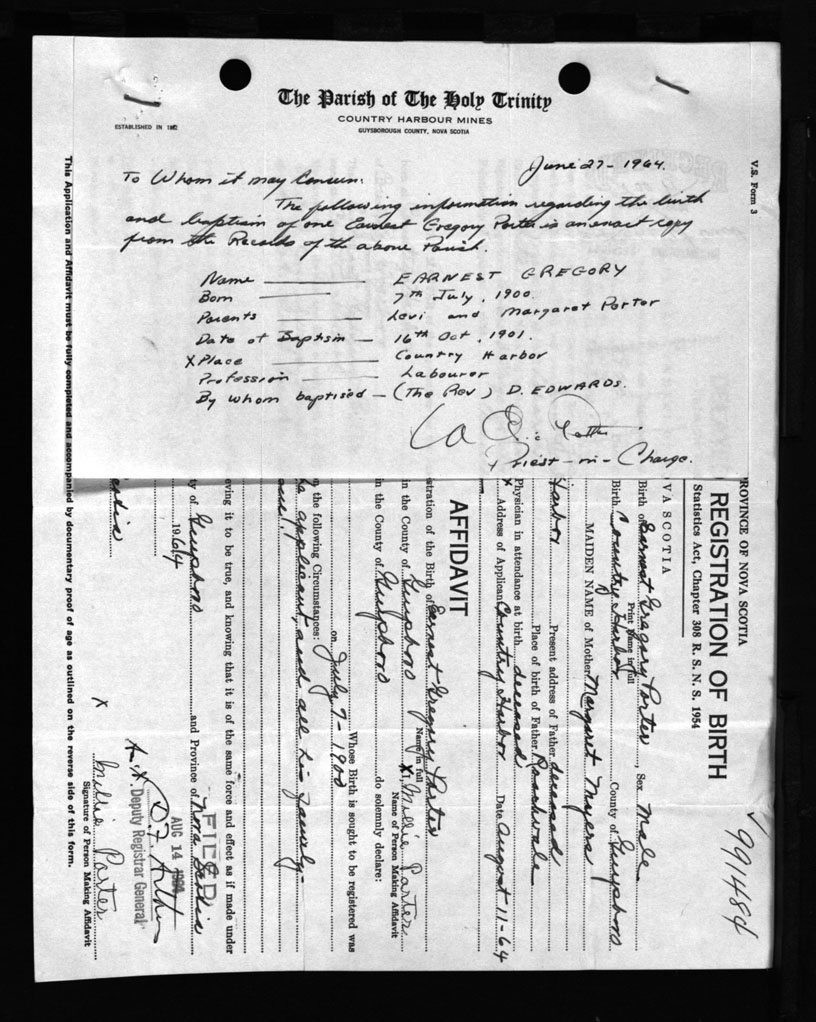 The Parish of The Holy Trinity
COUNTRY HARBOUR MINES
GUYSBOROUGH COUNTY, NOVA SCOTIA
ESTABLISHED IN
June 27 - 1964.
To Whom it may Concern:
The following information regarding the birth
and baptism of one Earnest Gregory Porter is an exact copy
from the Records of the above Parish.
Name — EARNEST GREGORY
Born — 7th July, 1900.
Parents — Levi and Margaret Porter
Date of Baptism — 16th Oct, 1901.
X Place — Country Harbor
Profession — Labourer
By whom baptised — (The Rev) D. EDWARDS.
Priest-in-Charge.
V.S. Form 3
991484
ROVINCE OF NOVA SCOTIA
REGISTRATION OF BIRTH
Statistics Act, Chapter 308 R. S. N. S. 1954
VA SCOTIA
Birth of Earnest Gregory Porter, Sex Male
Print Name in full
Birth Country Harbor County of Guysboro
MAIDEN NAME of Mother Margaret Myers
Harbor Present address of Father deceased
Place of birth of Father
Physician in attendance at birth deceased
X Address of Applicant Country Harbor Date August 11-64
AFFIDAVIT
stration of the Birth of Earnest Gregory Porter
Name in full
in the County of Guysboro X I, Millie Porter
Name of Person Making Affidavit
in the County of Guysboro do solemnly declare:
Whose Birth is sought to be registered was
on July 7-1900
n the following Circumstances:
applicant, and all his family.
eving it to be true, and knowing that it is of the same force and effect as if made under
ty of Guysboro and Province of Nova Scotia
1964
FILED
AUG 14
Deputy Registrar General
X Millie Porter
Signature of Person Making Affidavit
This Application and Affidavit must be fully completed and accompanied by documentary proof of age as outlined on the reverse side of this form.